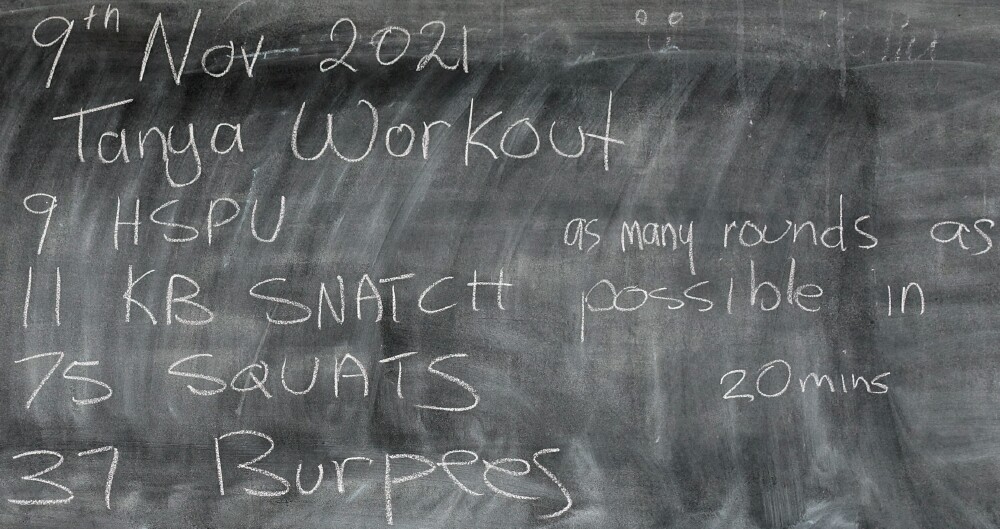 9th Nov 2021
Tanya Workout
9 HSPU
11 KB SNATCH
75 SQUATS
37 Burpees
as many rounds as
possible in
20mins